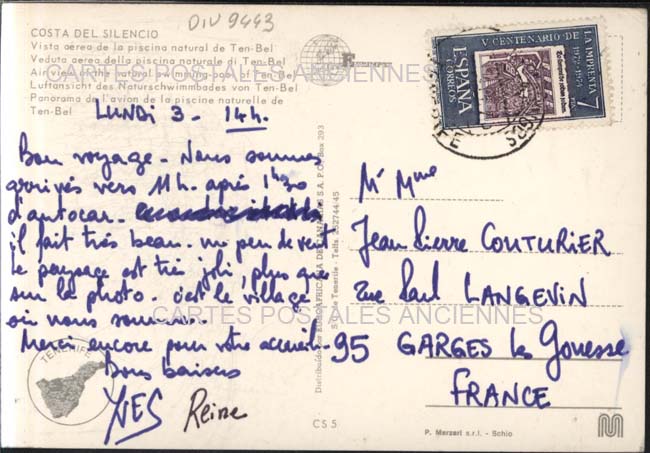 DIV 9443
COSTA DEL SILENCIO
Vista aérea de la piscina natural de Ten-Bel
Veduta aerea della piscina naturale di Ten-Bel
Air view of the natural swimming-pool of Ten-Bel
Luftansicht des Naturschwimmbades von Ten-Bel
Panorama de l'avion de la piscine naturelle de
Ten-Bel
CARTES POSTALES ANCIENNES
LUNDI 3 - 14h.
Bon voyage - Nous sommes
arrivés vers 11h. après 1h30
d'autocar.
il fait très beau. un peu de vent
le paysage est très joli, plus que
sur la photo. c'est le village
où nous sommes.
Merci encore pour votre accueil.
Bons baisers
YVES Reine
TENERIFE
V CENTENARIO DE LA IMPRENTA
ESPAÑA
CORREOS
7
Mr Mme
Jean Pierre COUTURIER
rue Paul LANGEVIN
95 GARGES les Gonesse
FRANCE
CARTES POSTALES ANCIENNES
CS 5
P. Marzari s.r.l. - Schio